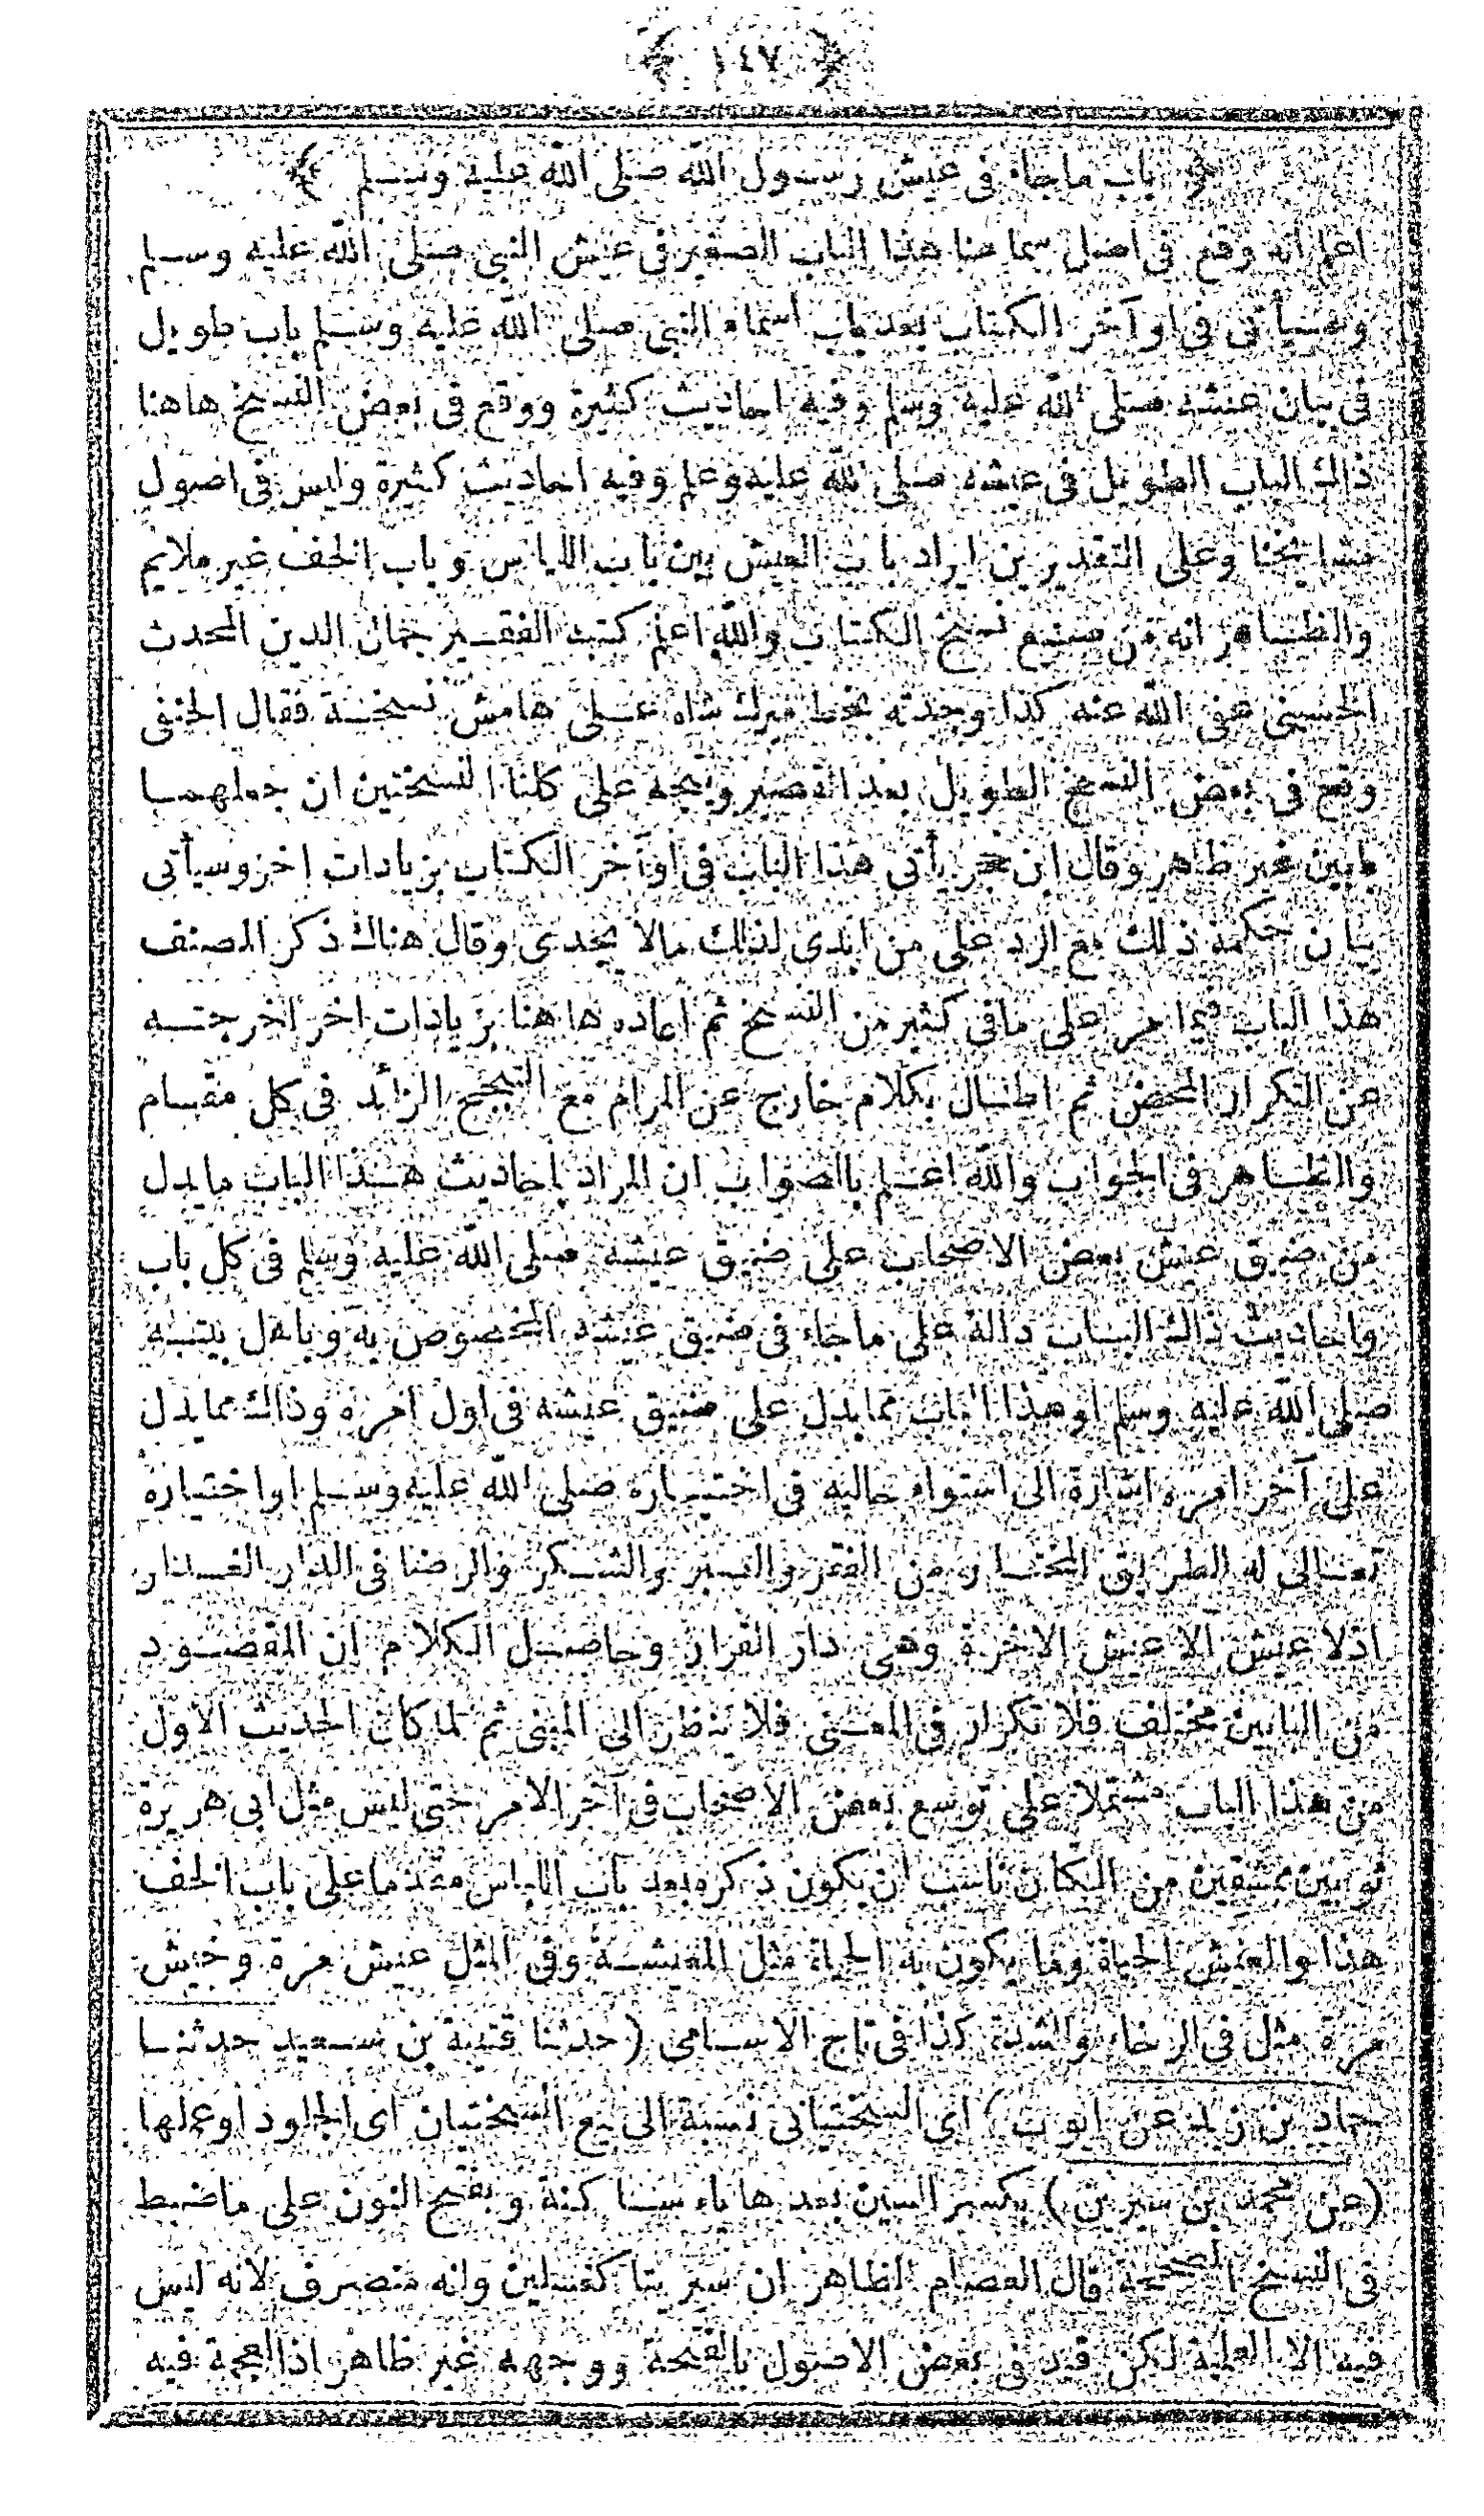 ﴿ ١٤٧ ﴾
﴿ باب ماجاء فى عيش رسول الله صلى الله عليه وسلم ﴾
اعلم انه وقع فى اصل سماعنا هذا الباب الصغير فى عيش النبى صلى الله عليه وسلم
وسيأتى فى اواخر الكتاب بعد باب اسماء النبى صلى الله عليه وسلم باب طويل
فى بيان عيشه صلى الله عليه وسلم وفيه احاديث كثيرة ووقع فى بعض النسخ هاهنا
ذاك الباب الطويل فى عيشه صلى الله عليه وسلم وفيه احاديث كثيرة وليس فى اصول
مشايخنا وعلى التقديرين ايراد باب العيش بين باب اللباس وباب الخف غير ملايم
والظاهر انه من صنيع نسخ الكتاب والله اعلم كتبه الفقير جمال الدين المحدث
الحسينى عفى الله عنه كذا وجدته بخط ميرك شاه على هامش نسخته فقال الحنفى
وقع فى بعض النسخ الطويل بعد القصير ويتجه على كلتا النسختين ان جعلهما
بابين غير ظاهر وقال ابن حجر يأتى هذا الباب فى اوآخر الكتاب بزيادات اخر وسيأتى
بيان حكمة ذلك مع الرد على من ابدى لذلك مالا يجدى وقال هناك ذكر المصنف
هذا الباب فيما مر على مافى كثير من النسخ ثم اعاده هاهنا بزيادات اخر اخرجته
عن التكرار المحض ثم اطال بكلام خارج عن المرام مع التبجح الزائد فى كل مقام
والظاهر فى الجواب والله اعلم بالصواب ان المراد باحاديث هذا الباب مايدل
من ضيق عيش بعض الاصحاب على ضيق عيشه صلى الله عليه وسلم فى كل باب
واحاديث ذاك الباب دالة على ماجاء فى ضيق عيشه المخصوص به وباهل بيته
صلى الله عليه وسلم اوهذا الباب مما يدل على ضيق عيشه فى اول امره وذاك مما يدل
على آخر امره اشارة الى استواء حاليه فى اختياره صلى الله عليه وسلم او اختياره
تعالى له الطريق المختار من الفقر والصبر والشكر والرضا فى الدار الغدار
اذلا عيش الا عيش الاخرة وهى دار القرار وحاصل الكلام ان المقصود
من البابين مختلف فلا تكرار فى المعنى فلا تنظر الى المبنى ثم لما كان الحديث الاول
من هذا الباب مشتملا على توسع بعض الاصحاب فى آخر الامر حتى لبس مثل ابى هريرة
ثوبين ممشقين من الكتان ناسب ان يكون ذكره بعد باب اللباس مقدما على باب الخف
هذا والعيش الحياة وما يكون به الحياة مثل المعيشة وفى المثل عيش مرة وجيش
مرة مثل فى الرخاء والشدة كذا فى تاج الاسامى (حدثنا قتيبة بن سعيد حدثنا
حماد بن زيد عن ايوب) اى السختيانى نسبة الى بيع السختيان اى الجلود اوعملها
(عن محمد بن سيرين) بكسر السين بعدها ياء ساكنة وبفتح النون على ماضبط
فى النسخ المصححة قال العصام الظاهر ان سيرينا كغسلين وانه منصرف لانه ليس
فيه الا العلمية لكن قيد فى بعض الاصول بالفتحة ووجهه غير ظاهر اذالعجمة فيه